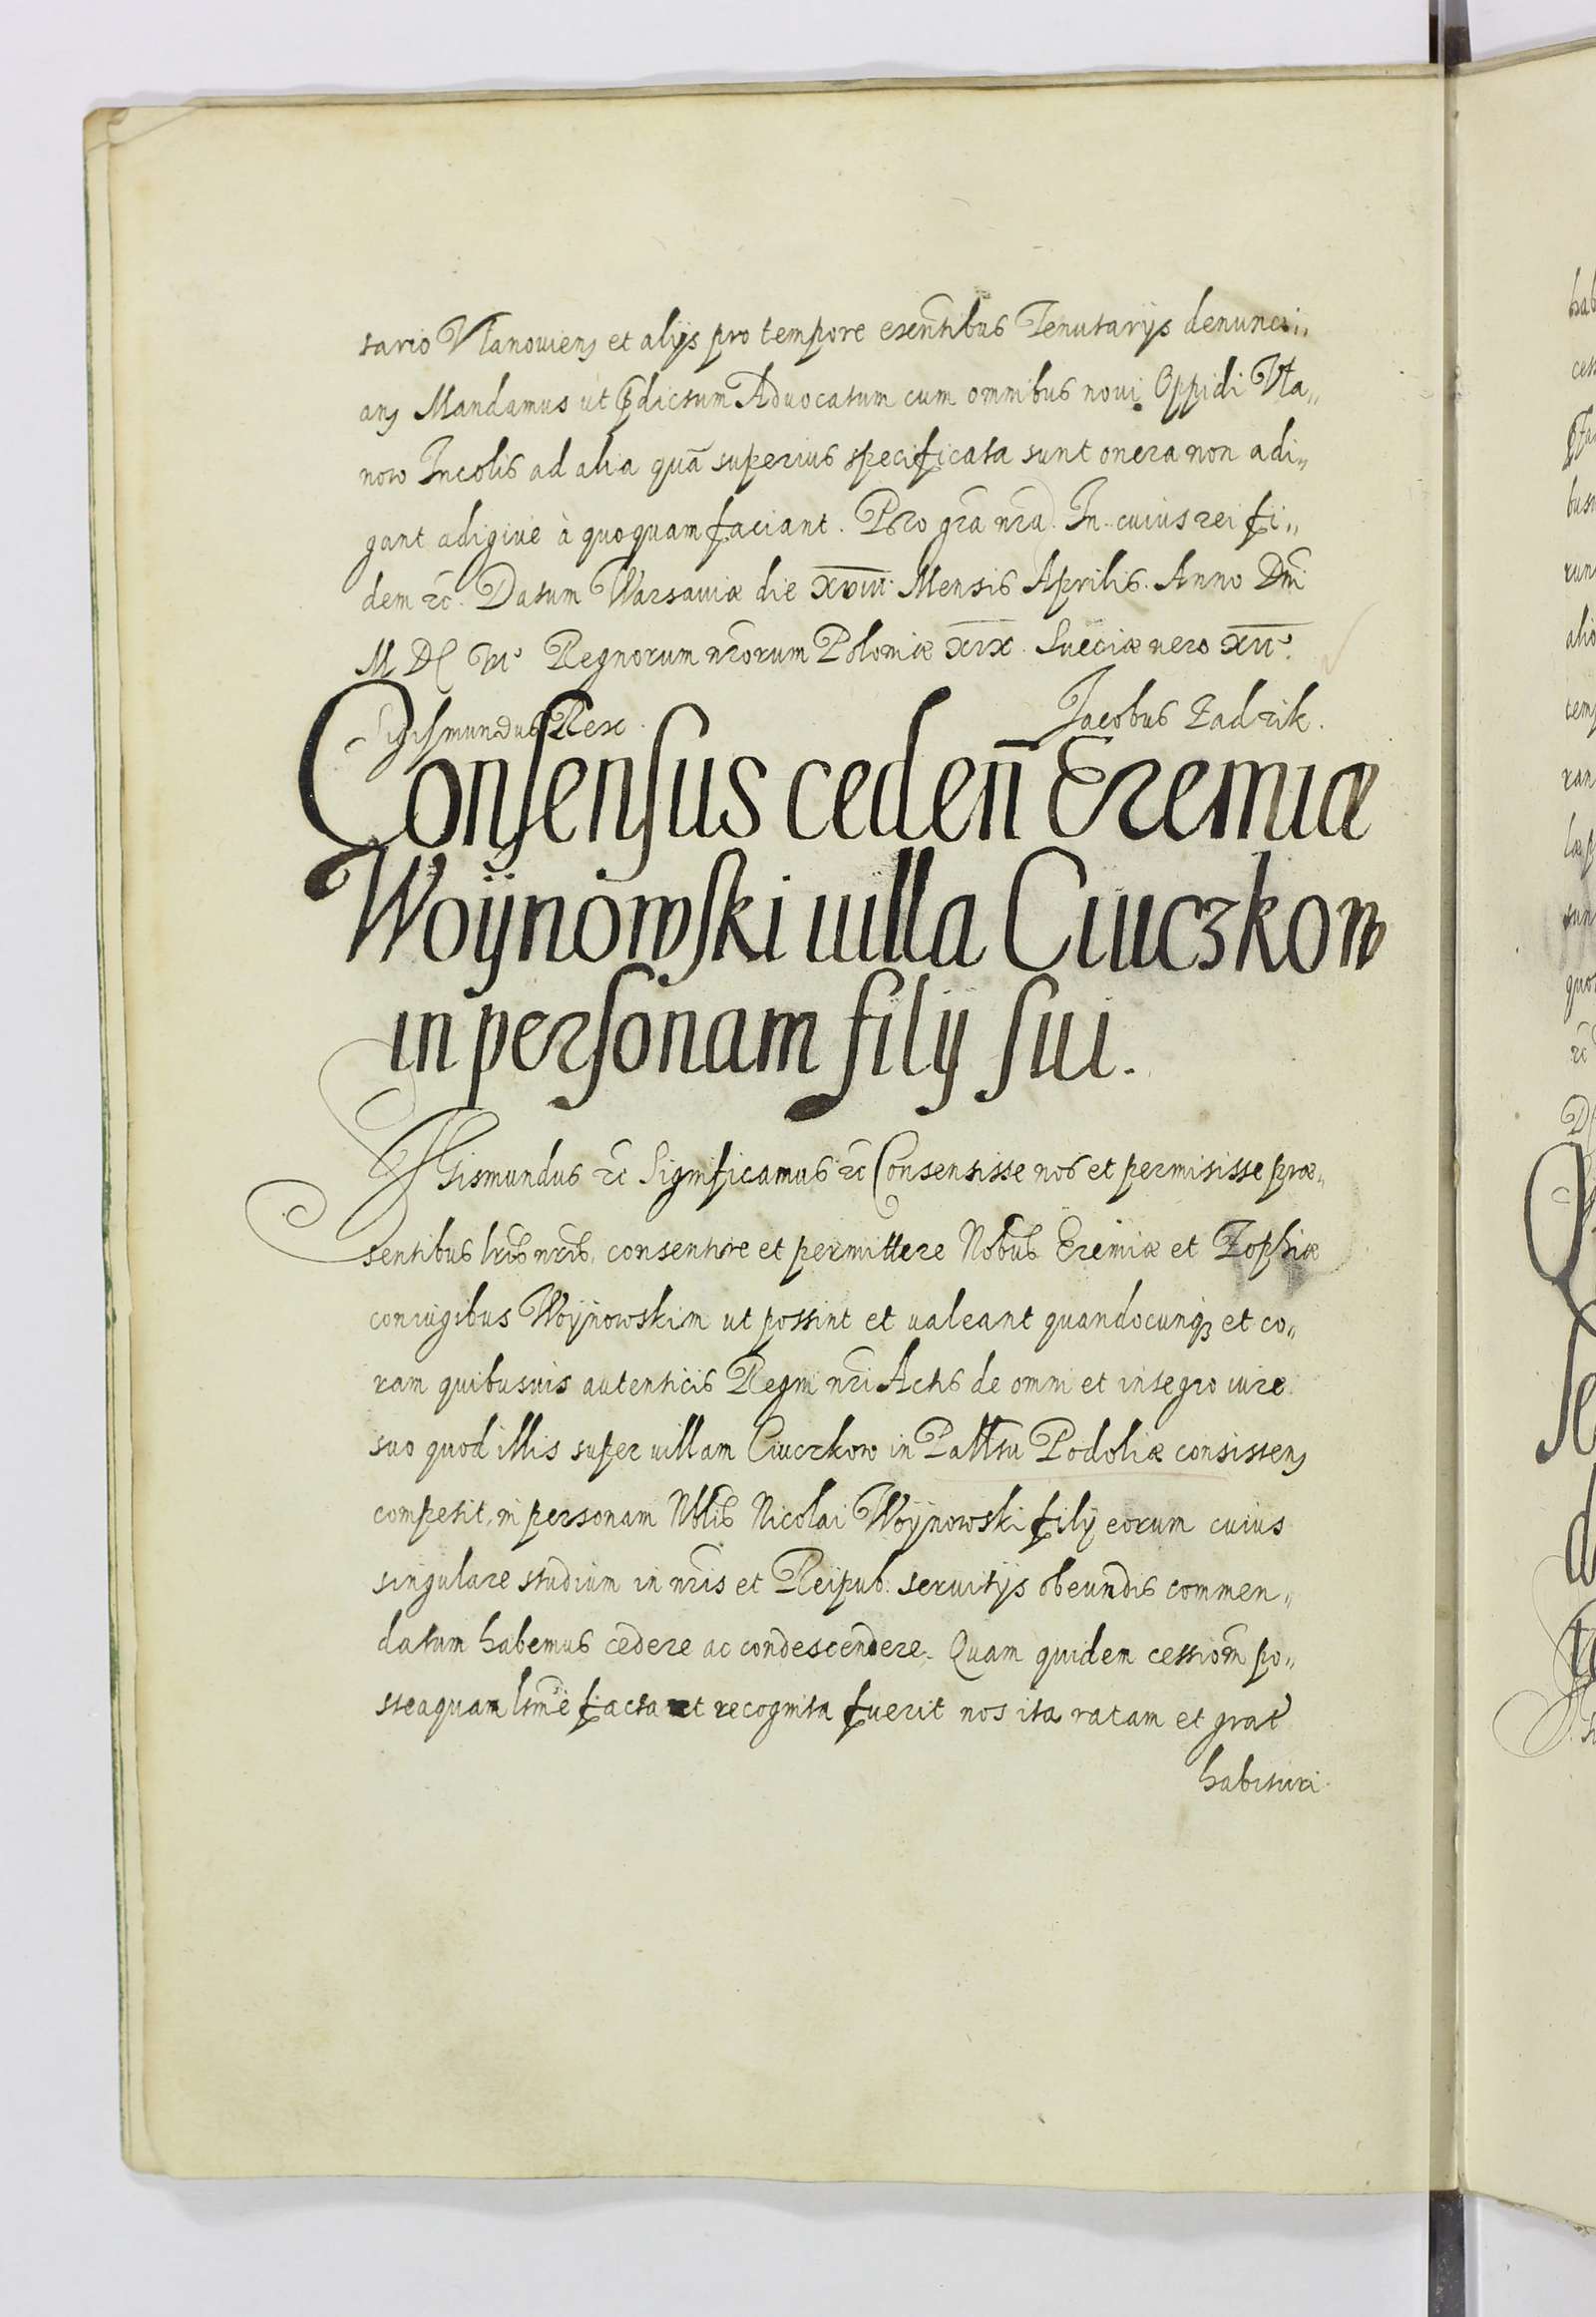 tario Vlanouien, et alijs pro tempore exẽntibus Tenutarijs denunci„
an, Mandamus ut p̃dictum Aduocatum cum omnibus noui Oppidi Vla„
now Incolis ad alia quã superius specificata sunt onera non adi„
gant adigiue à quoquam faciant. Pro grã nrã. In cuius rei fi„
dem rc̃. Datum Warsauiæ die XVIII Mensis Aprilis. Anno Dni
Regnorum nrõrum Poloniæ XIX. Sueciæ uero
Sigismundus Rex. Jacobus Zadzik.
Consensus cedeñ Eremiæ
Woijnowski uilla Ciuczkow
in personam filij sui.
Sigismundus rc̃ Significamus rc̃ Consensisse nos et permisisse præ„
sentibus lrĩb nrĩs, consentire et permittere Nobus Eremiæ et Zophiæ
coniugibus Woijnowskim ut possint et ualeant quandocunq; et co„
ram quibusuis autenticis Regni nrĩ Actis de omni et integro iure
suo quod illis super uillam Ciuczkow in Palttu Podoliæ consisten,
competit, in personam Nblis Nicolai Woijnowski filij eorum cuius
singulare studium in nrĩs et Reipub: seruitijs obeundis commen„
datum habemus cedere ac condescendere. Quam quidem cessiom̃ po„
steaquam ltmẽ facta et recognita fuerit nos ita ratam et grat̃
habituri